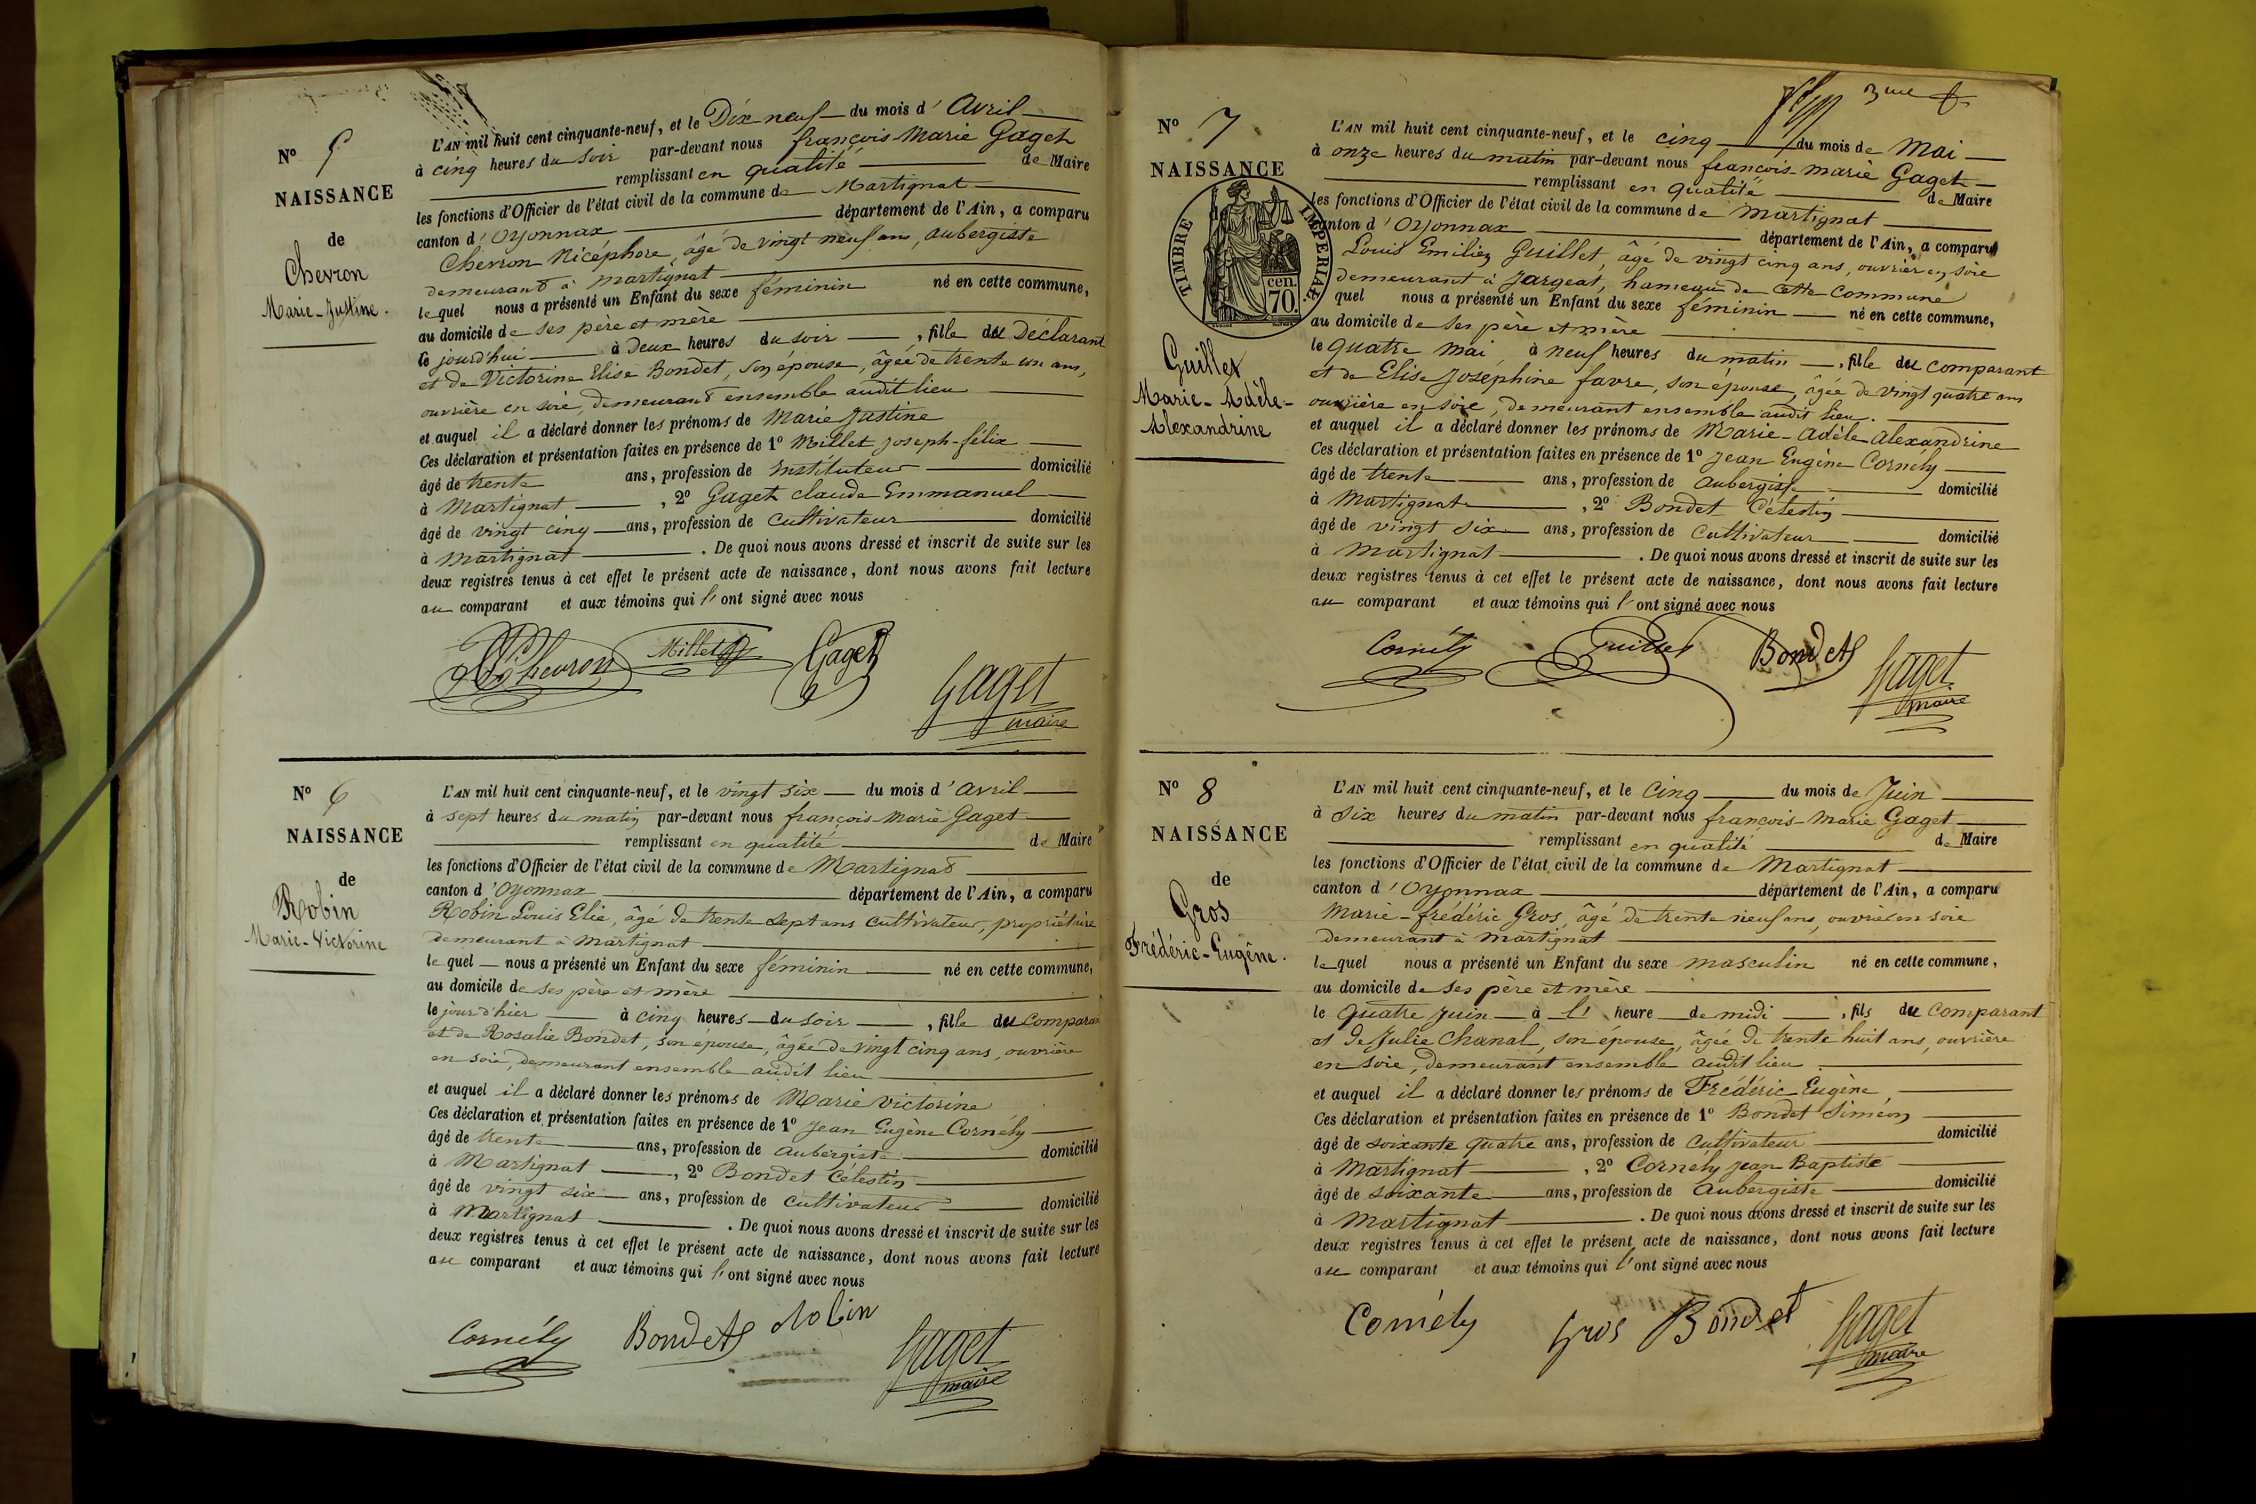 N° 5
NAISSANCE
de
Chevron
Marie-Justine.
L'AN mil huit cent cinquante-neuf, et le Dix neuf du mois d'Avril
à cinq heures du soir par-devant nous françois Marie Gaget
remplissant en qualité de Maire
les fonctions d'Officier de l'état civil de la commune de Martignat
canton d'Oyonnax département de l'Ain, a comparu
Chevron Nicéphore, âgé de vingt neuf ans, aubergiste
demeurant à Martignat
lequel nous a présenté un Enfant du sexe féminin né en cette commune,
au domicile de ses père et mère
le jourd'hui à Deux heures du soir, fille du Déclarant
et de Victorine Elise Bondet, son épouse, âgée de trente un ans,
ouvrière en soie, demeurant ensemble audit lieu
et auquel il a déclaré donner les prénoms de Marie Justine
Ces déclaration et présentation faites en présence de 1° Millet Joseph-félix
âgé de trente ans, profession de Instituteur domicilié
à Martignat, 2° Gaget claude Emmanuel
âgé de vingt cinq ans, profession de cultivateur domicilié
à Martignat. De quoi nous avons dressé et inscrit de suite sur les
deux registres tenus à cet effet le présent acte de naissance, dont nous avons fait lecture
au comparant et aux témoins qui l'ont signé avec nous
Chevron Millet Gaget
Gaget
maire
N° 6
NAISSANCE
de
Robin
Marie-Victorine
L'AN mil huit cent cinquante-neuf, et le vingt six du mois d'avril
à sept heures du matin par-devant nous françois Marie Gaget
remplissant en qualité de Maire
les fonctions d'Officier de l'état civil de la commune de Martignat
canton d'Oyonnax département de l'Ain, a comparu
Robin Louis Elie, âgé de trente sept ans cultivateur, propriétaire
demeurant à Martignat
lequel nous a présenté un Enfant du sexe féminin né en cette commune,
au domicile de ses père et mère
le jour d'hier à cinq heures du soir, fille du Comparant
et de Rosalie Bondet, son épouse, âgée de vingt cinq ans, ouvrière
en soie, demeurant ensemble audit lieu
et auquel il a déclaré donner les prénoms de Marie victorine
Ces déclaration et présentation faites en présence de 1° Jean Eugène Cornély
âgé de trente ans, profession de aubergiste domicilié
à Martignat, 2° Bondet Célestin
âgé de vingt six ans, profession de cultivateur domicilié
à Martignat. De quoi nous avons dressé et inscrit de suite sur les
deux registres tenus à cet effet le présent acte de naissance, dont nous avons fait lecture
au comparant et aux témoins qui l'ont signé avec nous
Cornély Bondet Robin
Gaget
maire
3me
N° 7
NAISSANCE
TIMBRE IMPERIAL
70 cen.
Guillet
Marie-Adèle-
Alexandrine
L'AN mil huit cent cinquante-neuf, et le cinq du mois de Mai
à onze heures du matin par-devant nous françois-marie Gaget
remplissant en qualité de Maire
les fonctions d'Officier de l'état civil de la commune de Martignat
canton d'Oyonnax département de l'Ain, a comparu
Louis Emilien Guillet, âgé de vingt cinq ans, ouvrier en soie
demeurant à Jargeat, hameau de cette commune
quel nous a présenté un Enfant du sexe féminin né en cette commune,
au domicile de ses père et mère
le quatre Mai à neuf heures du matin, fille du comparant
et de Elise Josephine favre, son épouse, âgée de vingt quatre ans
ouvrière en soie, demeurant ensemble audit lieu.
et auquel il a déclaré donner les prénoms de Marie-Adèle Alexandrine
Ces déclaration et présentation faites en présence de 1° Jean Eugène Cornély
âgé de trente ans, profession de aubergiste domicilié
à Martignat, 2° Bondet Célestin
âgé de vingt six ans, profession de cultivateur domicilié
à Martignat. De quoi nous avons dressé et inscrit de suite sur les
deux registres tenus à cet effet le présent acte de naissance, dont nous avons fait lecture
au comparant et aux témoins qui l'ont signé avec nous
Cornély Guillet Bondet Gaget
maire
N° 8
NAISSANCE
de
Gros
Frédéric-Eugène.
L'AN mil huit cent cinquante-neuf, et le cinq du mois de Juin
à six heures du matin par-devant nous françois-marie Gaget
remplissant en qualité de Maire
les fonctions d'Officier de l'état civil de la commune de Martignat
canton d'Oyonnax département de l'Ain, a comparu
Marie-frédéric Gros, âgé de trente neuf ans, ouvrier en soie
demeurant à Martignat
lequel nous a présenté un Enfant du sexe masculin né en cette commune,
au domicile de ses père et mère
le quatre juin à l' heure de midi, fils du comparant
et de Julie Chanal, son épouse, âgée de trente huit ans, ouvrière
en soie, demeurant ensemble audit lieu.
et auquel il a déclaré donner les prénoms de Frédéric Eugène,
Ces déclaration et présentation faites en présence de 1° Bondet Siméon
âgé de soixante quatre ans, profession de cultivateur domicilié
à Martignat, 2° Cornély Jean Baptiste
âgé de soixante ans, profession de aubergiste domicilié
à Martignat. De quoi nous avons dressé et inscrit de suite sur les
deux registres tenus à cet effet le présent acte de naissance, dont nous avons fait lecture
au comparant et aux témoins qui l'ont signé avec nous
Cornély Gros Bondet Gaget
maire